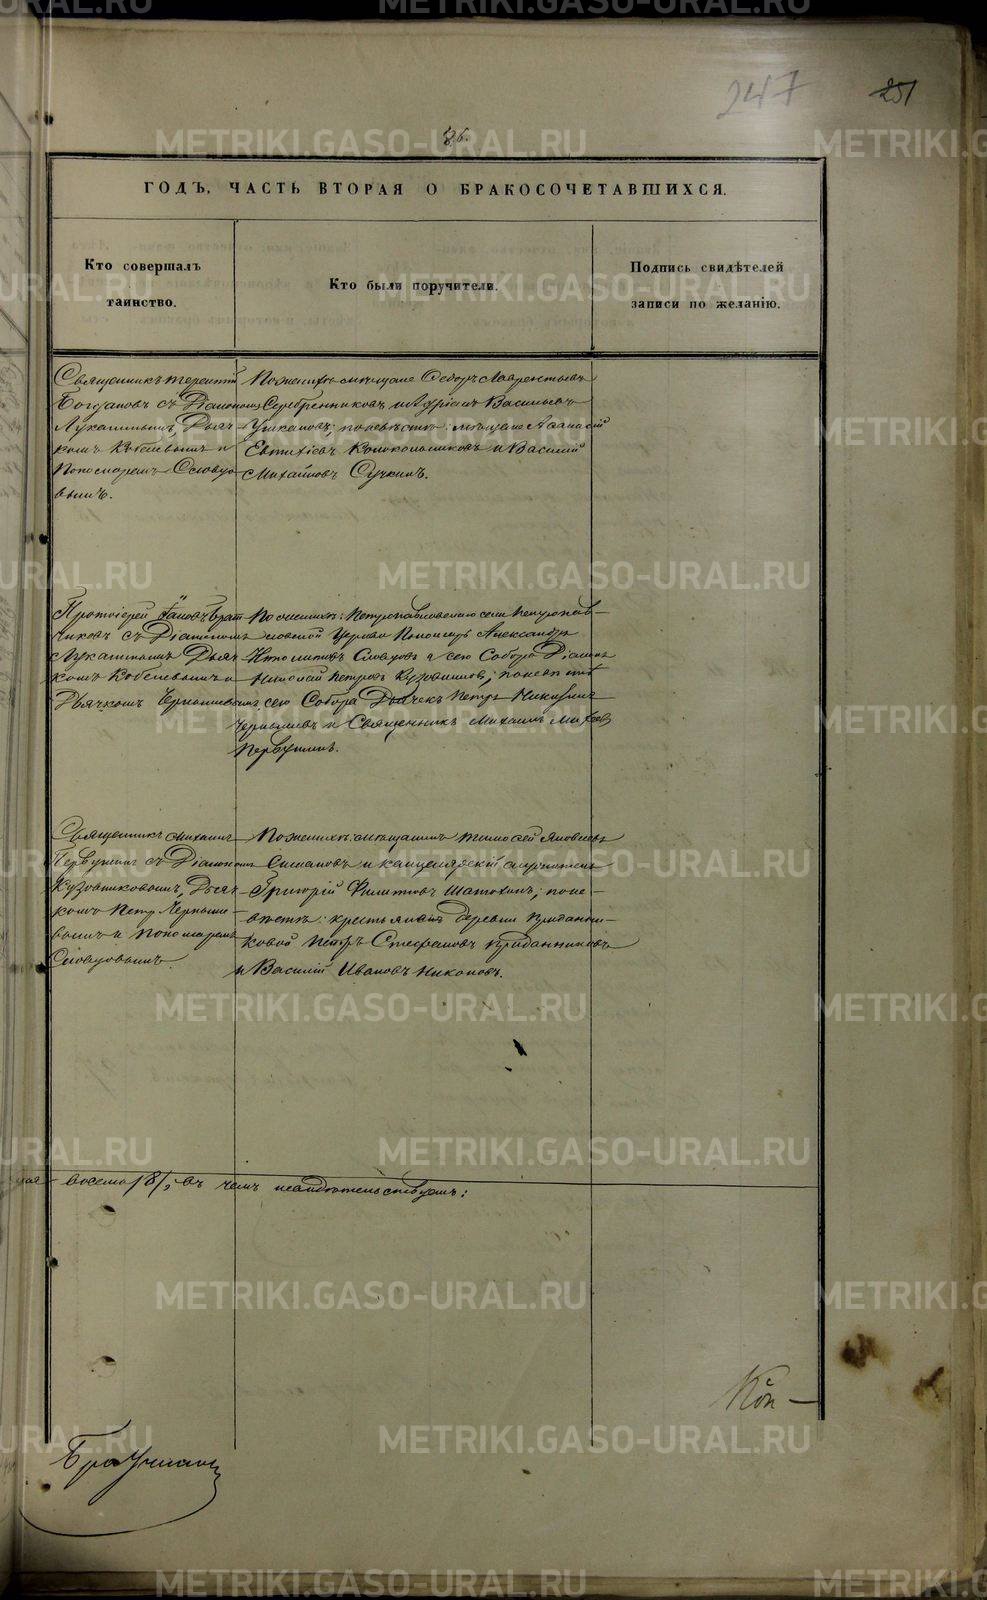 247 251
86.
ГОДЪ, ЧАСТЬ ВТОРАЯ О БРАКОСОЧЕТАВШИХСЯ.
Кто совершалъ
таинство.
Кто были поручители.
Подпись свидѣтелей
записи по желанію.
Священникъ Терентій
Богдановъ съ Діакономъ
Луканинымъ, Дьяч-
комъ
Пономаремъ Словцо
вымъ.
По женихѣ мѣщане Ѳедоръ Лаврентьевъ
Серебренниковъ и Адріанъ Васильевъ
Ушаковъ; по невѣстѣ: мѣщане Аѳанасій
Евтихіевъ Колокольниковъ и Василій
Михайловъ Сучкинъ.
Протоіерей Іаковъ Брат
чиковъ съ Діакономъ
Луканинымъ Дьяч-
комъ Кобелевымъ и
Дьячкомъ Чернышевымъ
По женихѣ: Петропавловскаго села Петропав-
ловской Церкви Пономарь Александръ
Ипполитовъ Словцовъ и сего Собора Діаконъ
Николай Петровъ Кузовниковъ; по невѣстѣ
сего Собора Дьячекъ Петръ
Чернышевъ и Священникъ Михаилъ
Первушинъ.
Священникъ Михаилъ
Первушинъ съ Діакономъ
Кузовниковымъ, Дьяч-
комъ Петр. Черныше-
вымъ и Пономаремъ
Словцовымъ.
По женихѣ: мѣщанинъ Тимоѳей Яковлевъ
Симановъ и канцелярскій служитель
Григорій Филиповъ Шатохинъ; по не-
вѣстѣ: крестьяне деревни Приданни-
ковой Петръ Стефановъ Приданниковъ
и Василій Ивановъ Никоновъ.
восемь /8/, въ чемъ и свидѣтельствуемъ: